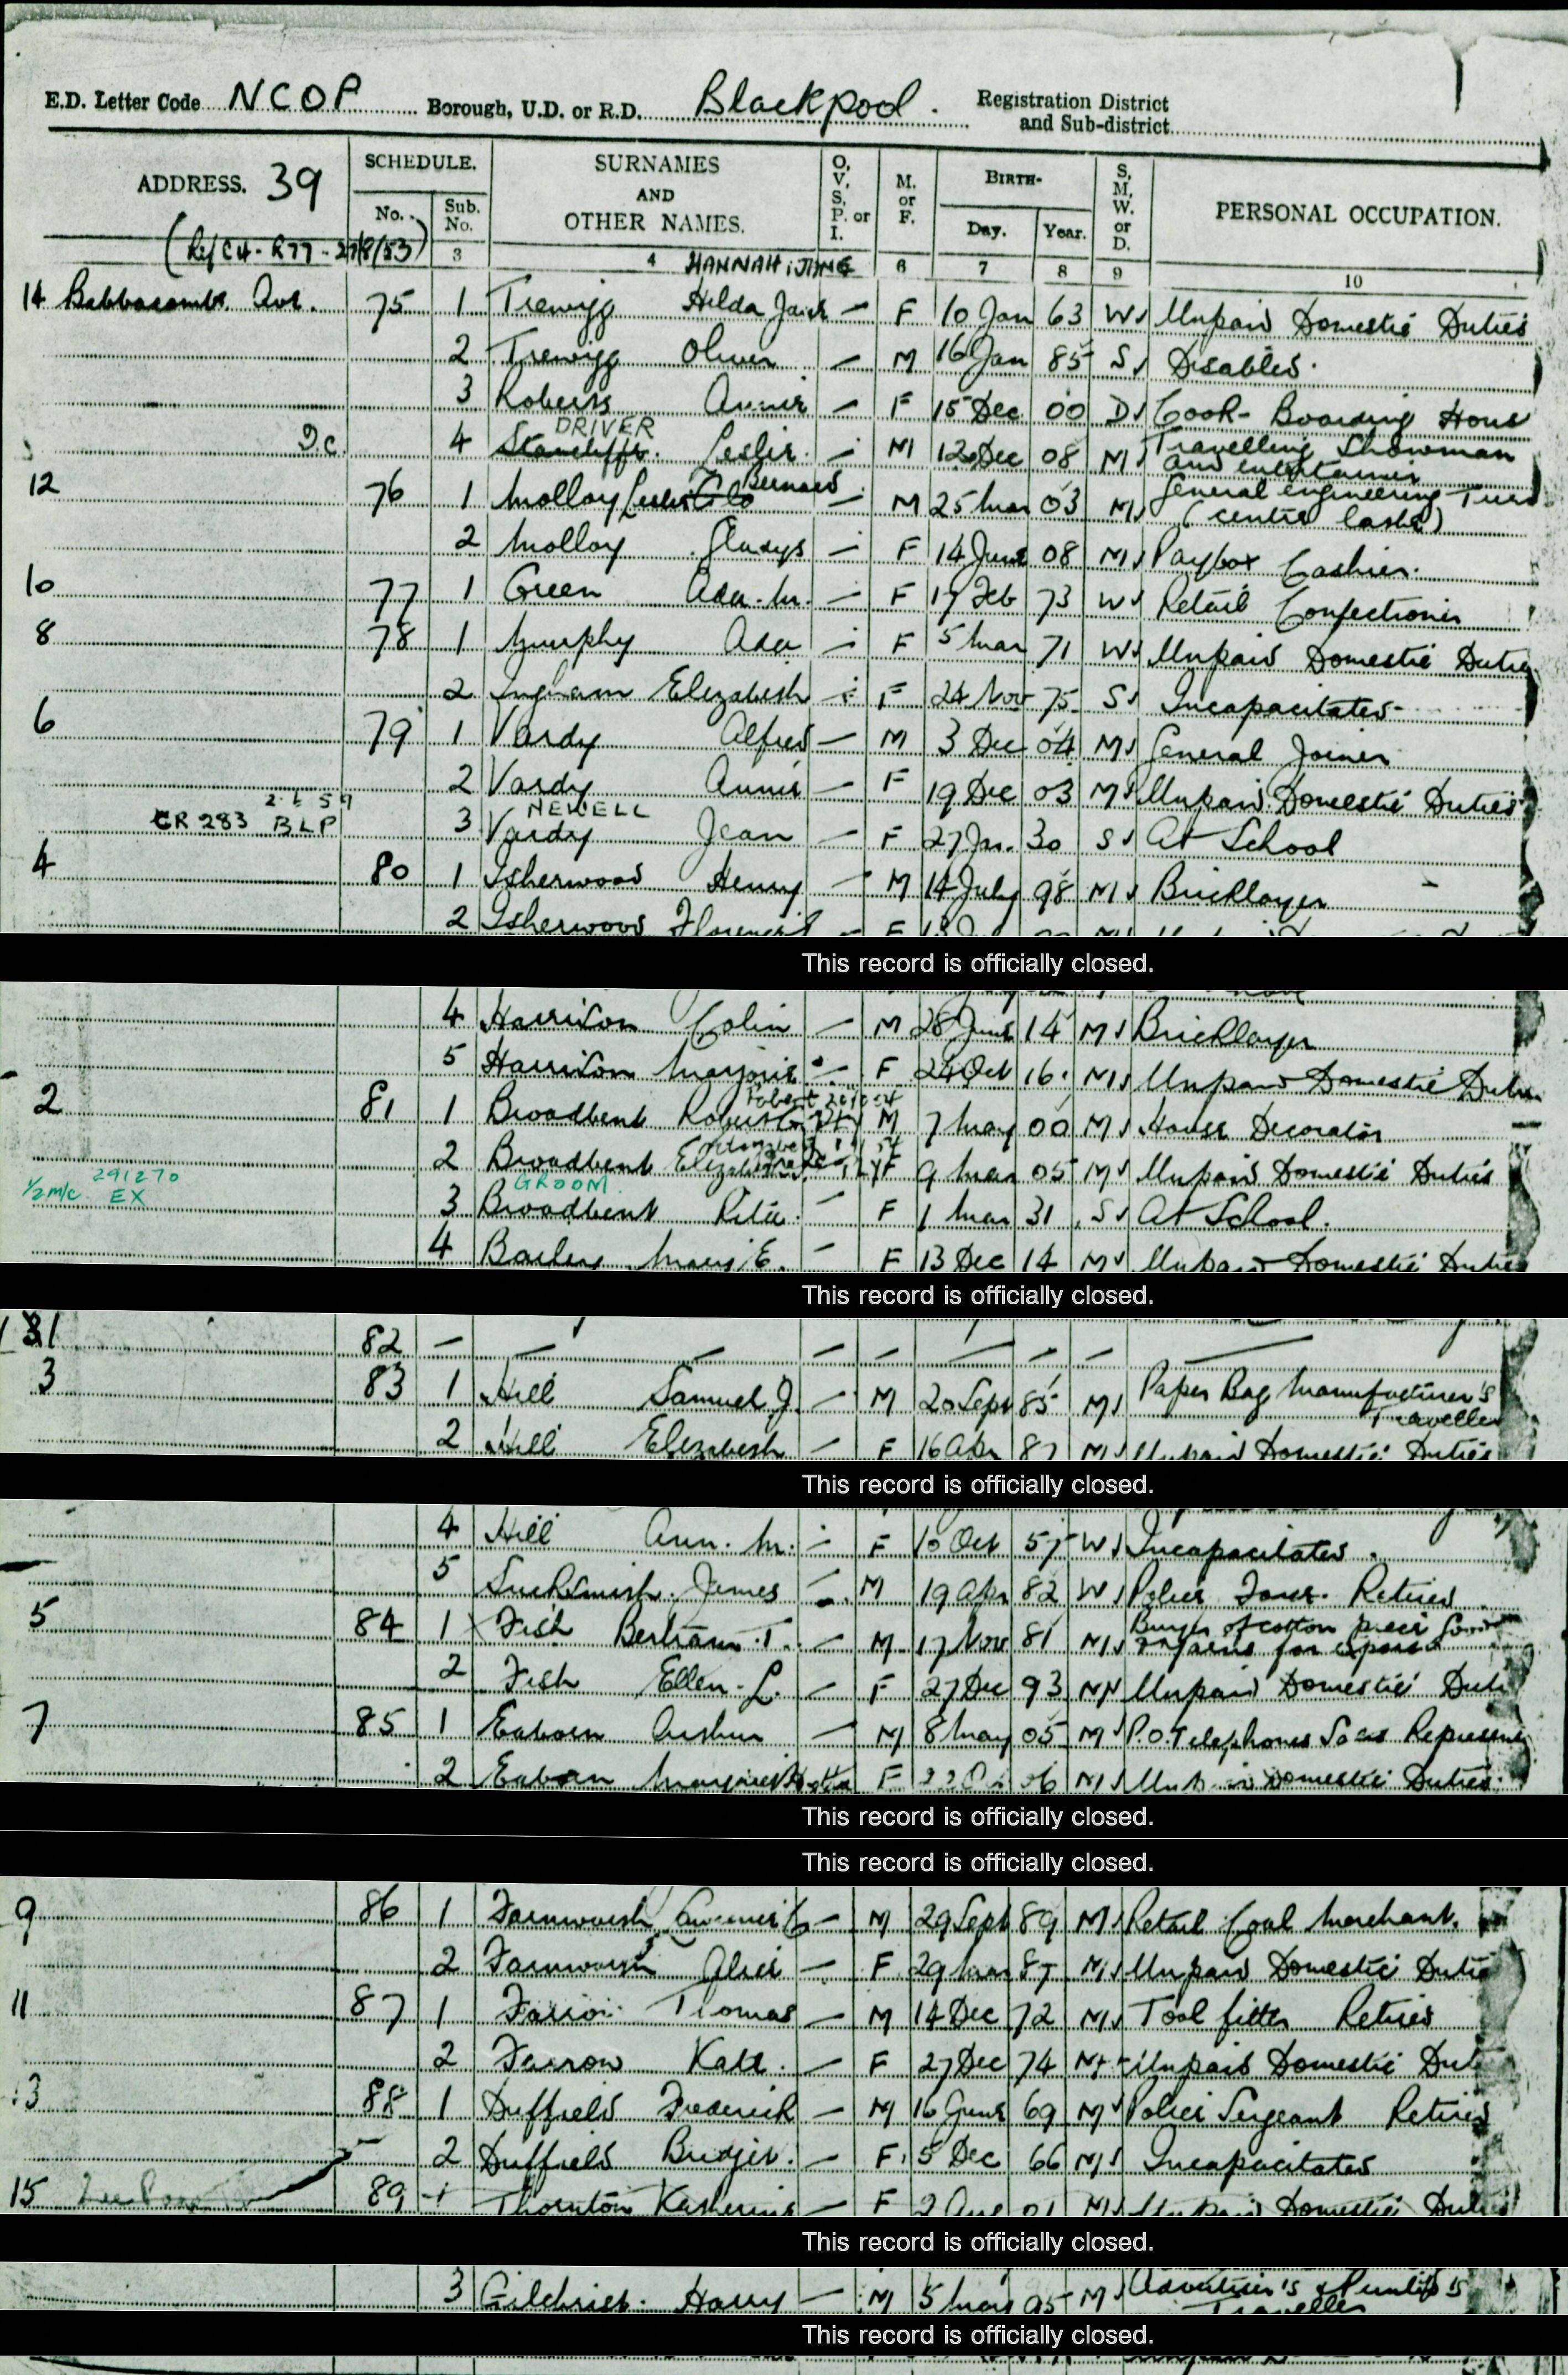 E.D. Letter Code NCOP Borough, U.D. or R.D. Blackpool. Registration District and Sub-district
ADDRESS. 39 SCHEDULE. No. Sub. No. SURNAMES AND OTHER NAMES. O, V, S, P. or I. M. or F. BIRTH- Day. Year. S, M, W. or D. PERSONAL OCCUPATION.
3 4 HANNAH JANE 6 7 8 9 10
14 Babbacombe Ave. 75 1 Trewigg Hilda — F 10 Jan 63 W Unpaid Domestic Duties
2 Trewigg Oliver — M 16 Jan 85 S Disabled.
3 Roberts Annie — F 15 Dec 00 D Cook - Boarding House
DRIVER
D.C. 4 Stancliffe. Leslie. — M 12 Dec 08 M Travelling Showman and entertainer
12 76 1 Molloy Leslie Bernard — M 25 Mar 03 M General engineering (centre lathe)
2 Molloy Gladys — F 14 June 08 M Paybox Cashier.
10 77 1 Green Ada. M. — F 19 Feb 73 W Retail Confectioner
8 78 1 Murphy Ada — F 5 Mar 71 W Unpaid Domestic Duties
2 Ingham Elizabeth F 24 Nov 75 S Incapacitated
6 79 1 Vardy Alfred — M 3 Dec 04 M General Joiner
2 Vardy Annie — F 19 Dec 03 M Unpaid Domestic Duties
NEWELL
CR 283 BLP 3 Vardy Jean — F 27 Jan. 30 S At School
4 80 1 Isherwood Henry — M 14 July 98 M Bricklayer
2 Isherwood F
This record is officially closed.
4 Harrison Colin — M 28 June 14 M Bricklayer
5 Harrison Marjorie — F 24 Oct 16 M Unpaid Domestic Duties
2 81 1 Broadbent Robert M 7 May 00 M House Decorator
2 Broadbent F 9 Mar 05 M Unpaid Domestic Duties
291270 GROOM
1/2 m/c. EX 3 Broadbent Rita. — F 1 Mar 31 S At School.
4 Bailey Mary E. — F 13 Dec 14 M Unpaid Domestic Duties
This record is officially closed.
82 — — — — — — — — —
3 83 1 Hill Samuel J. — M 20 Sept 85 M Paper Bag Manufacturer's Traveller
2 Hill Elizabeth — F 16 Apr 87 M Unpaid Domestic Duties
This record is officially closed.
4 Hill Ann. M. — F 10 Oct 57 W Incapacitated.
5 James — M 19 Apr 82 W Police Retired
5 84 1 Fish Bertram T. — M 17 Nov 81 M Buyer of cotton piece Goods for export
2 Fish Ellen L. — F 27 Dec 93 M Unpaid Domestic Duties
7 85 1 Eaborn Arthur — M 8 May 05 M P.O. Telephones Sales
2 Eaborn F 06 M Unpaid Domestic Duties.
This record is officially closed.
This record is officially closed.
9 86 1 Farnworth — M 29 Sept 89 M Retail Coal Merchant.
2 Farnworth Alice — F 29 Mar 87 M Unpaid Domestic Duties
11 87 1 Farrow Thomas — M 14 Dec 72 M Tool fitter Retired
2 Farrow Kate. — F 27 Dec 74 M Unpaid Domestic Duties
13 88 1 Duffield Frederick — M 16 June 69 M Police Sergeant Retired
2 Duffield Bridget. — F 5 Dec 66 M Incapacitated
15 89 1 Thornton Katherine — F 2 Aug 01 M Unpaid Domestic Duties
This record is officially closed.
3 Gilchrist. Harry — M 5 May 95 M Traveller
This record is officially closed.